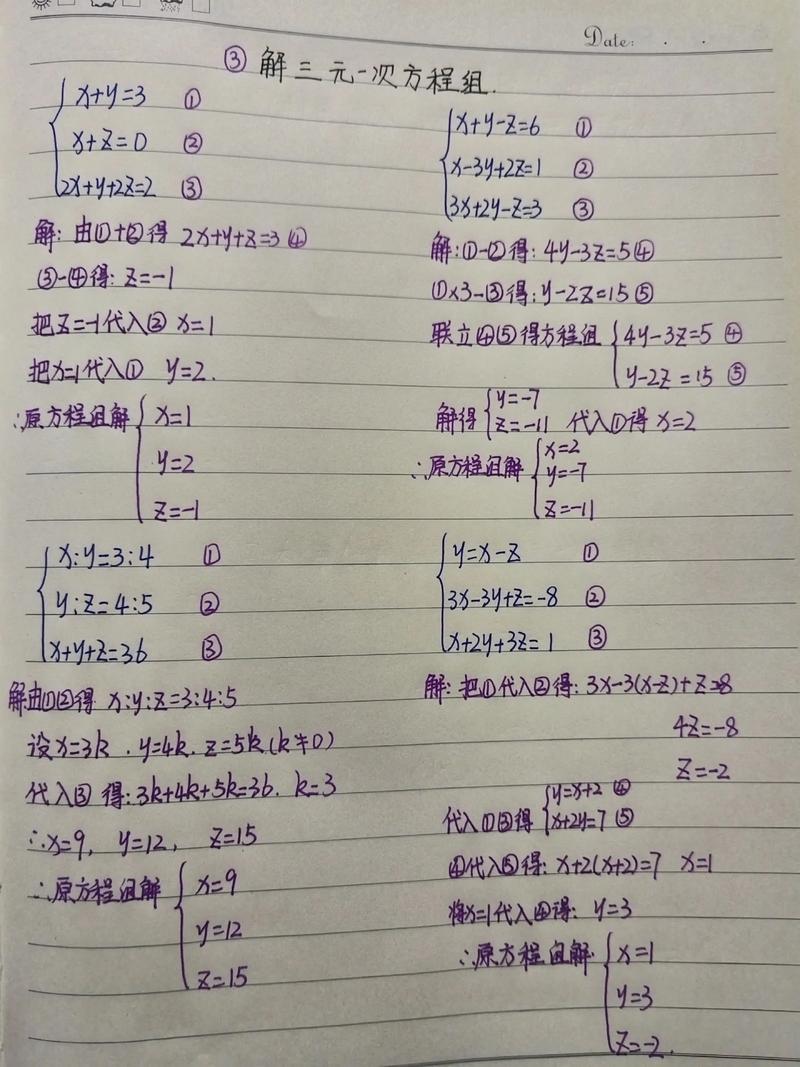 Date:
③ 解三元一次方程组.
x+y=3 ①
x+z=0 ②
2x+y+2z=2 ③
解: 由①+②得 2x+y+z=3 ④
③-④得: z=-1
把z=-1代入② x=1
把x=1代入① y=2.
∴原方程组解 x=1
y=2
z=-1
x+y-z=6 ①
x-3y+2z=1 ②
3x+2y-z=3 ③
解:①-②得: 4y-3z=5④
①×3-③得: y-2z=15⑤
联立④⑤得方程组 4y-3z=5 ④
y-2z=15 ⑤
解得 y=-7
z=-11 代入①得 x=2
∴原方程组解 x=2
y=-7
z=-11
x:y=3:4 ①
y:z=4:5 ②
x+y+z=36 ③
解由①②得 x:y:z=3:4:5
设x=3k.y=4k.z=5k(k≠0)
代入③ 得: 3k+4k+5k=36. k=3
∴x=9, y=12, z=15
∴原方程组解 x=9
y=12
z=15
y=x-z ①
3x-3y+z=-8 ②
x+2y+3z=1 ③
解: 把①代入②得: 3x-3(x-z)+z=-8
4z=-8
z=-2
代入①③得 y=x+2 ④
x+2y=7 ⑤
④代入⑤得: x+2(x+2)=7 x=1
将x=1代入④得: y=3
∴原方程组解 x=1
y=3
z=-2.